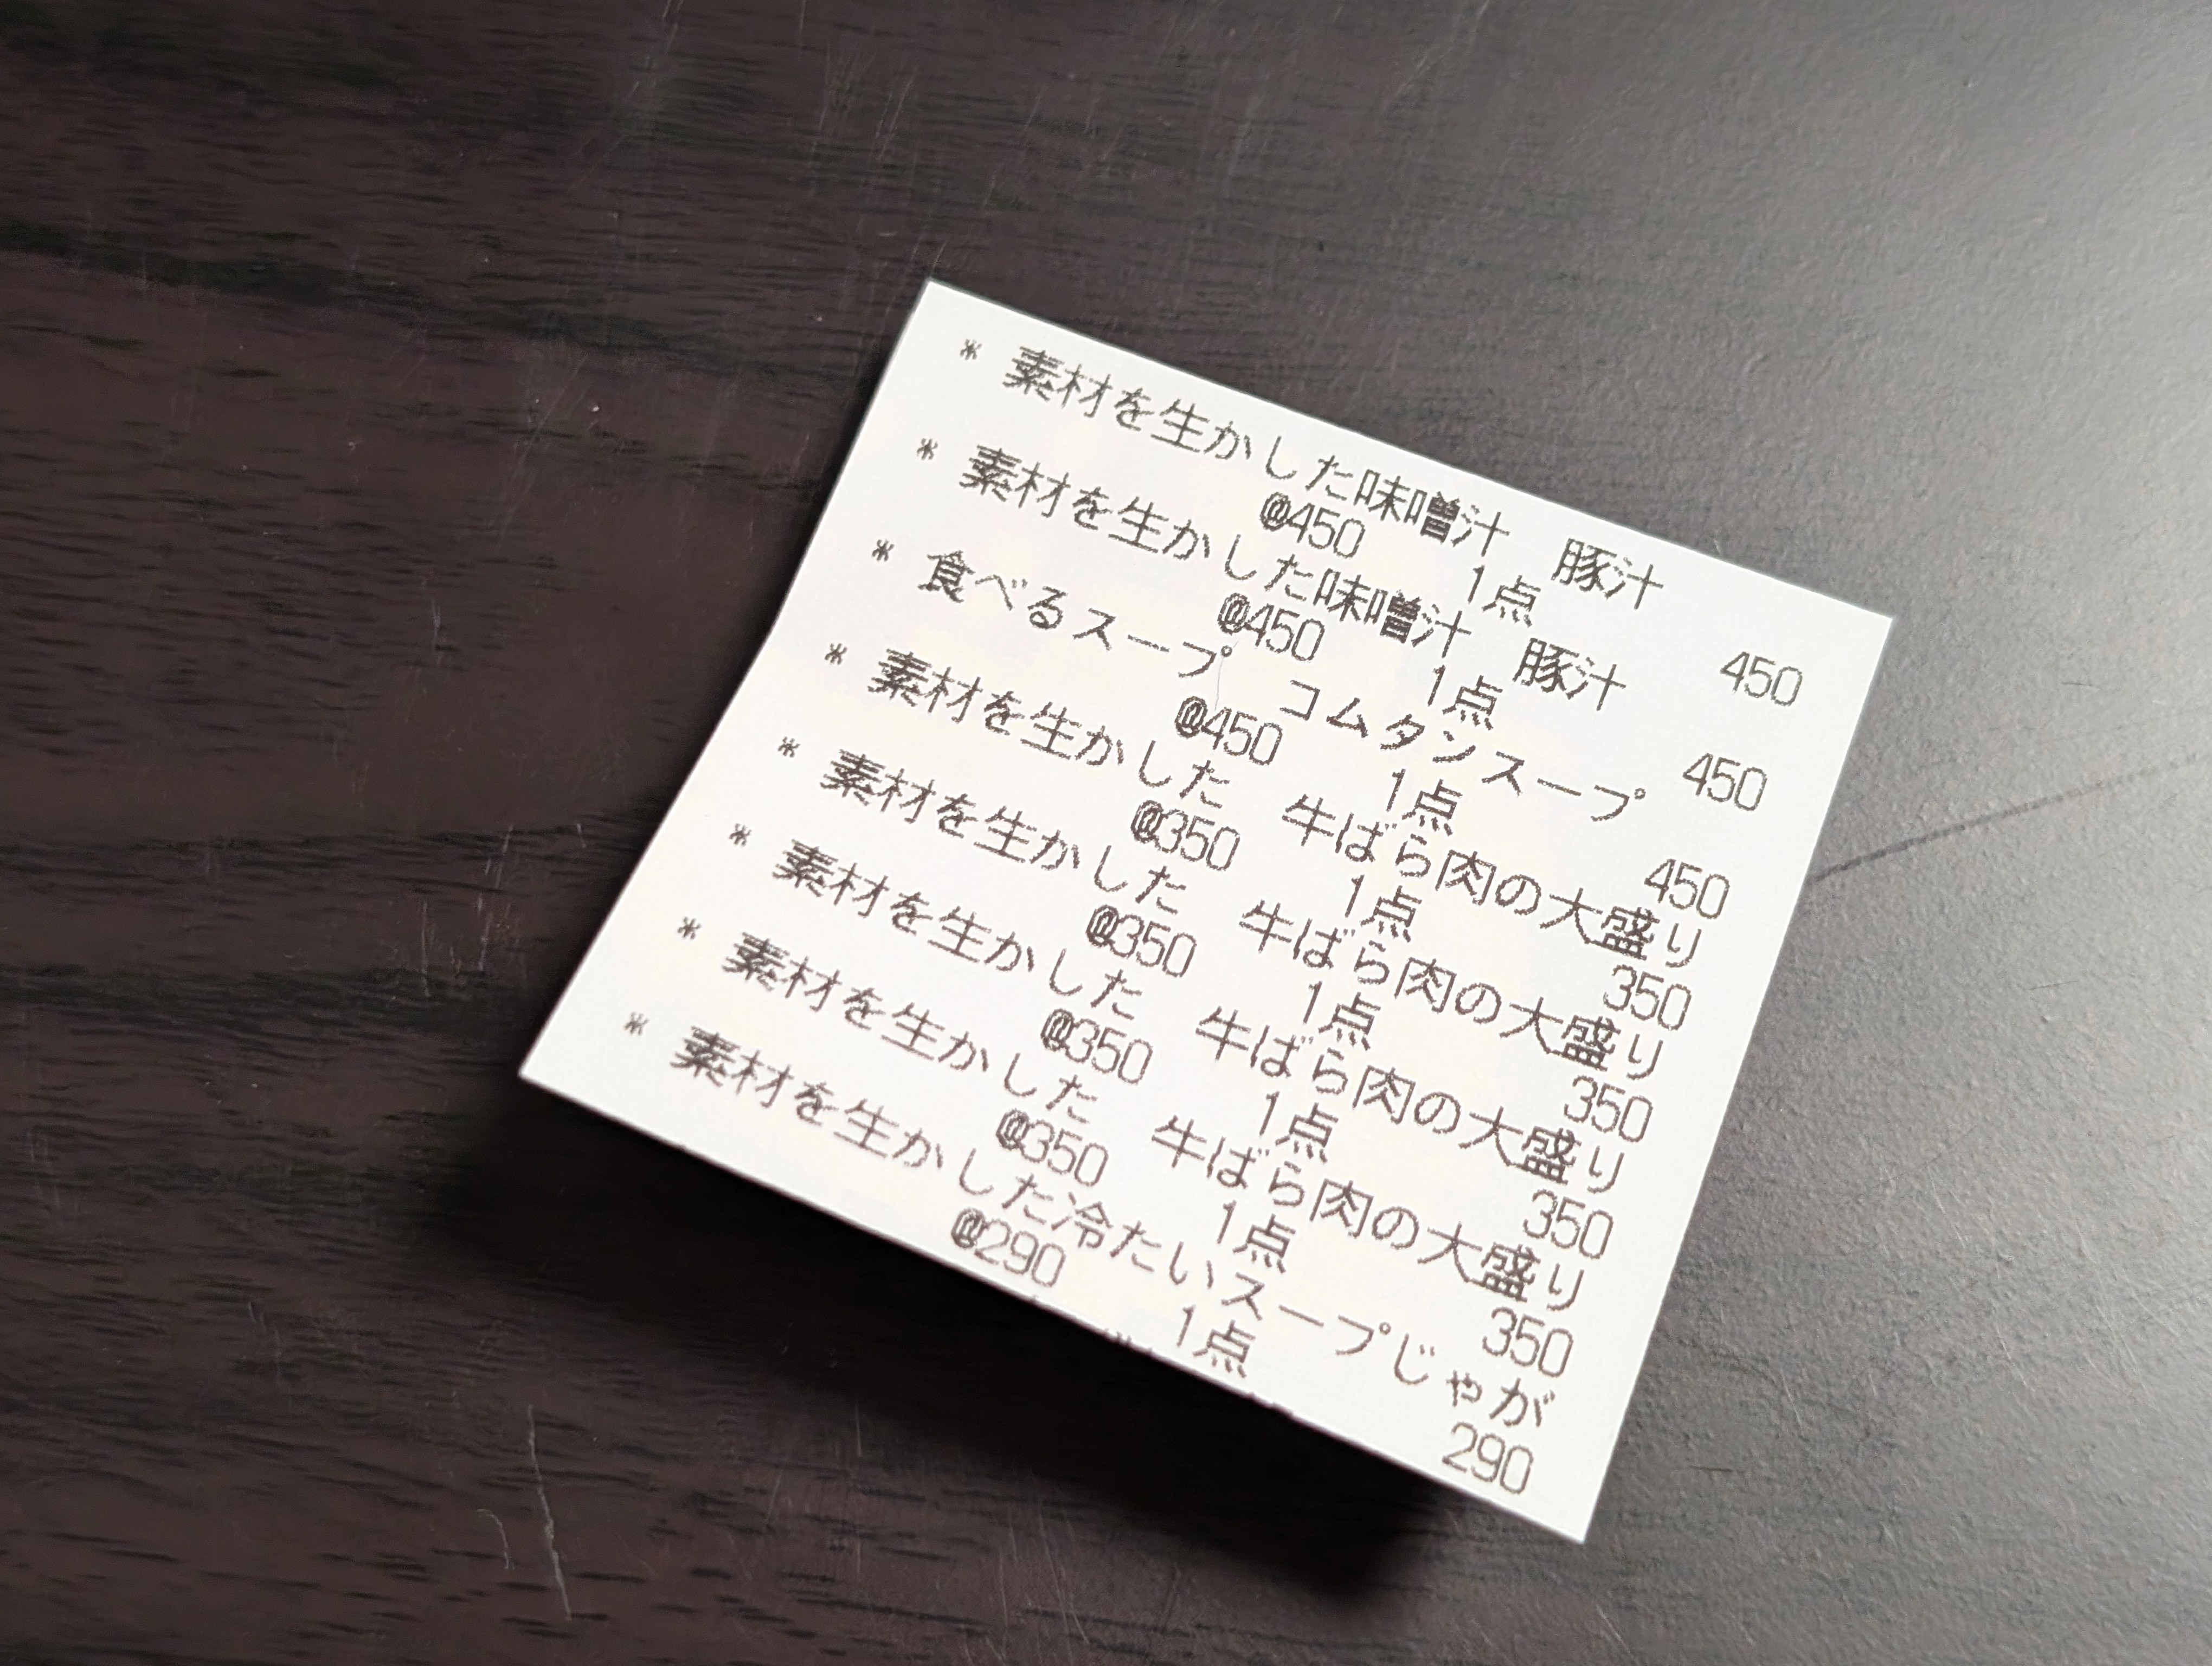 * 素材を生かした味噌汁　豚汁
@450 1点 450
* 素材を生かした味噌汁　豚汁
@450 1点 450
* 食べるスープ　コムタンスープ
@450 1点 450
* 素材を生かした　牛ばら肉の大盛り
@350 1点 350
* 素材を生かした　牛ばら肉の大盛り
@350 1点 350
* 素材を生かした　牛ばら肉の大盛り
@350 1点 350
* 素材を生かした　牛ばら肉の大盛り
@350 1点 350
* 素材を生かした冷たいスープじゃが
@290 1点 290